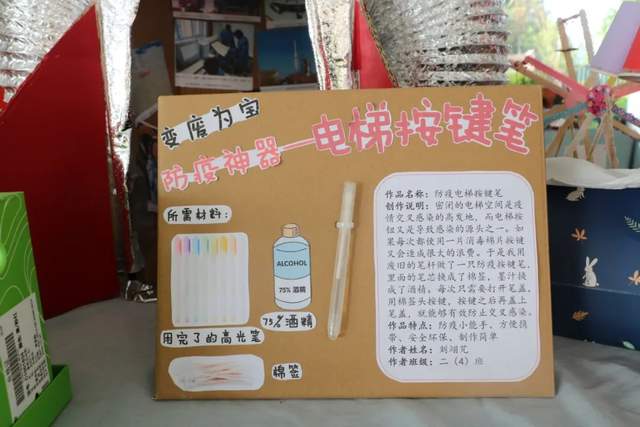 变废为宝
防疫神器—电梯按键笔
所需材料:
ALCOHOL
75% 酒精
75%酒精
用完了的高光笔
棉签
作品名称：防疫电梯按键笔
创作说明：密闭的电梯空间是疫
情交叉感染的高发地，而电梯按
钮又是导致感染的源头之一。如
果每次都使用一片消毒棉片按键
又会造成很大的浪费。于是我用
废旧的笔杆做了一只防疫按键笔，
里面的笔芯换成了棉签，墨汁换
成了酒精。每次只需要打开笔盖，
用棉签头按键，按键之后再盖上
笔盖，就能够有效防止交叉感染。
作品特点：防疫小能手、方便携
带、安全环保、制作简单
作者姓名：刘翊芃
作者班级：二（4）班